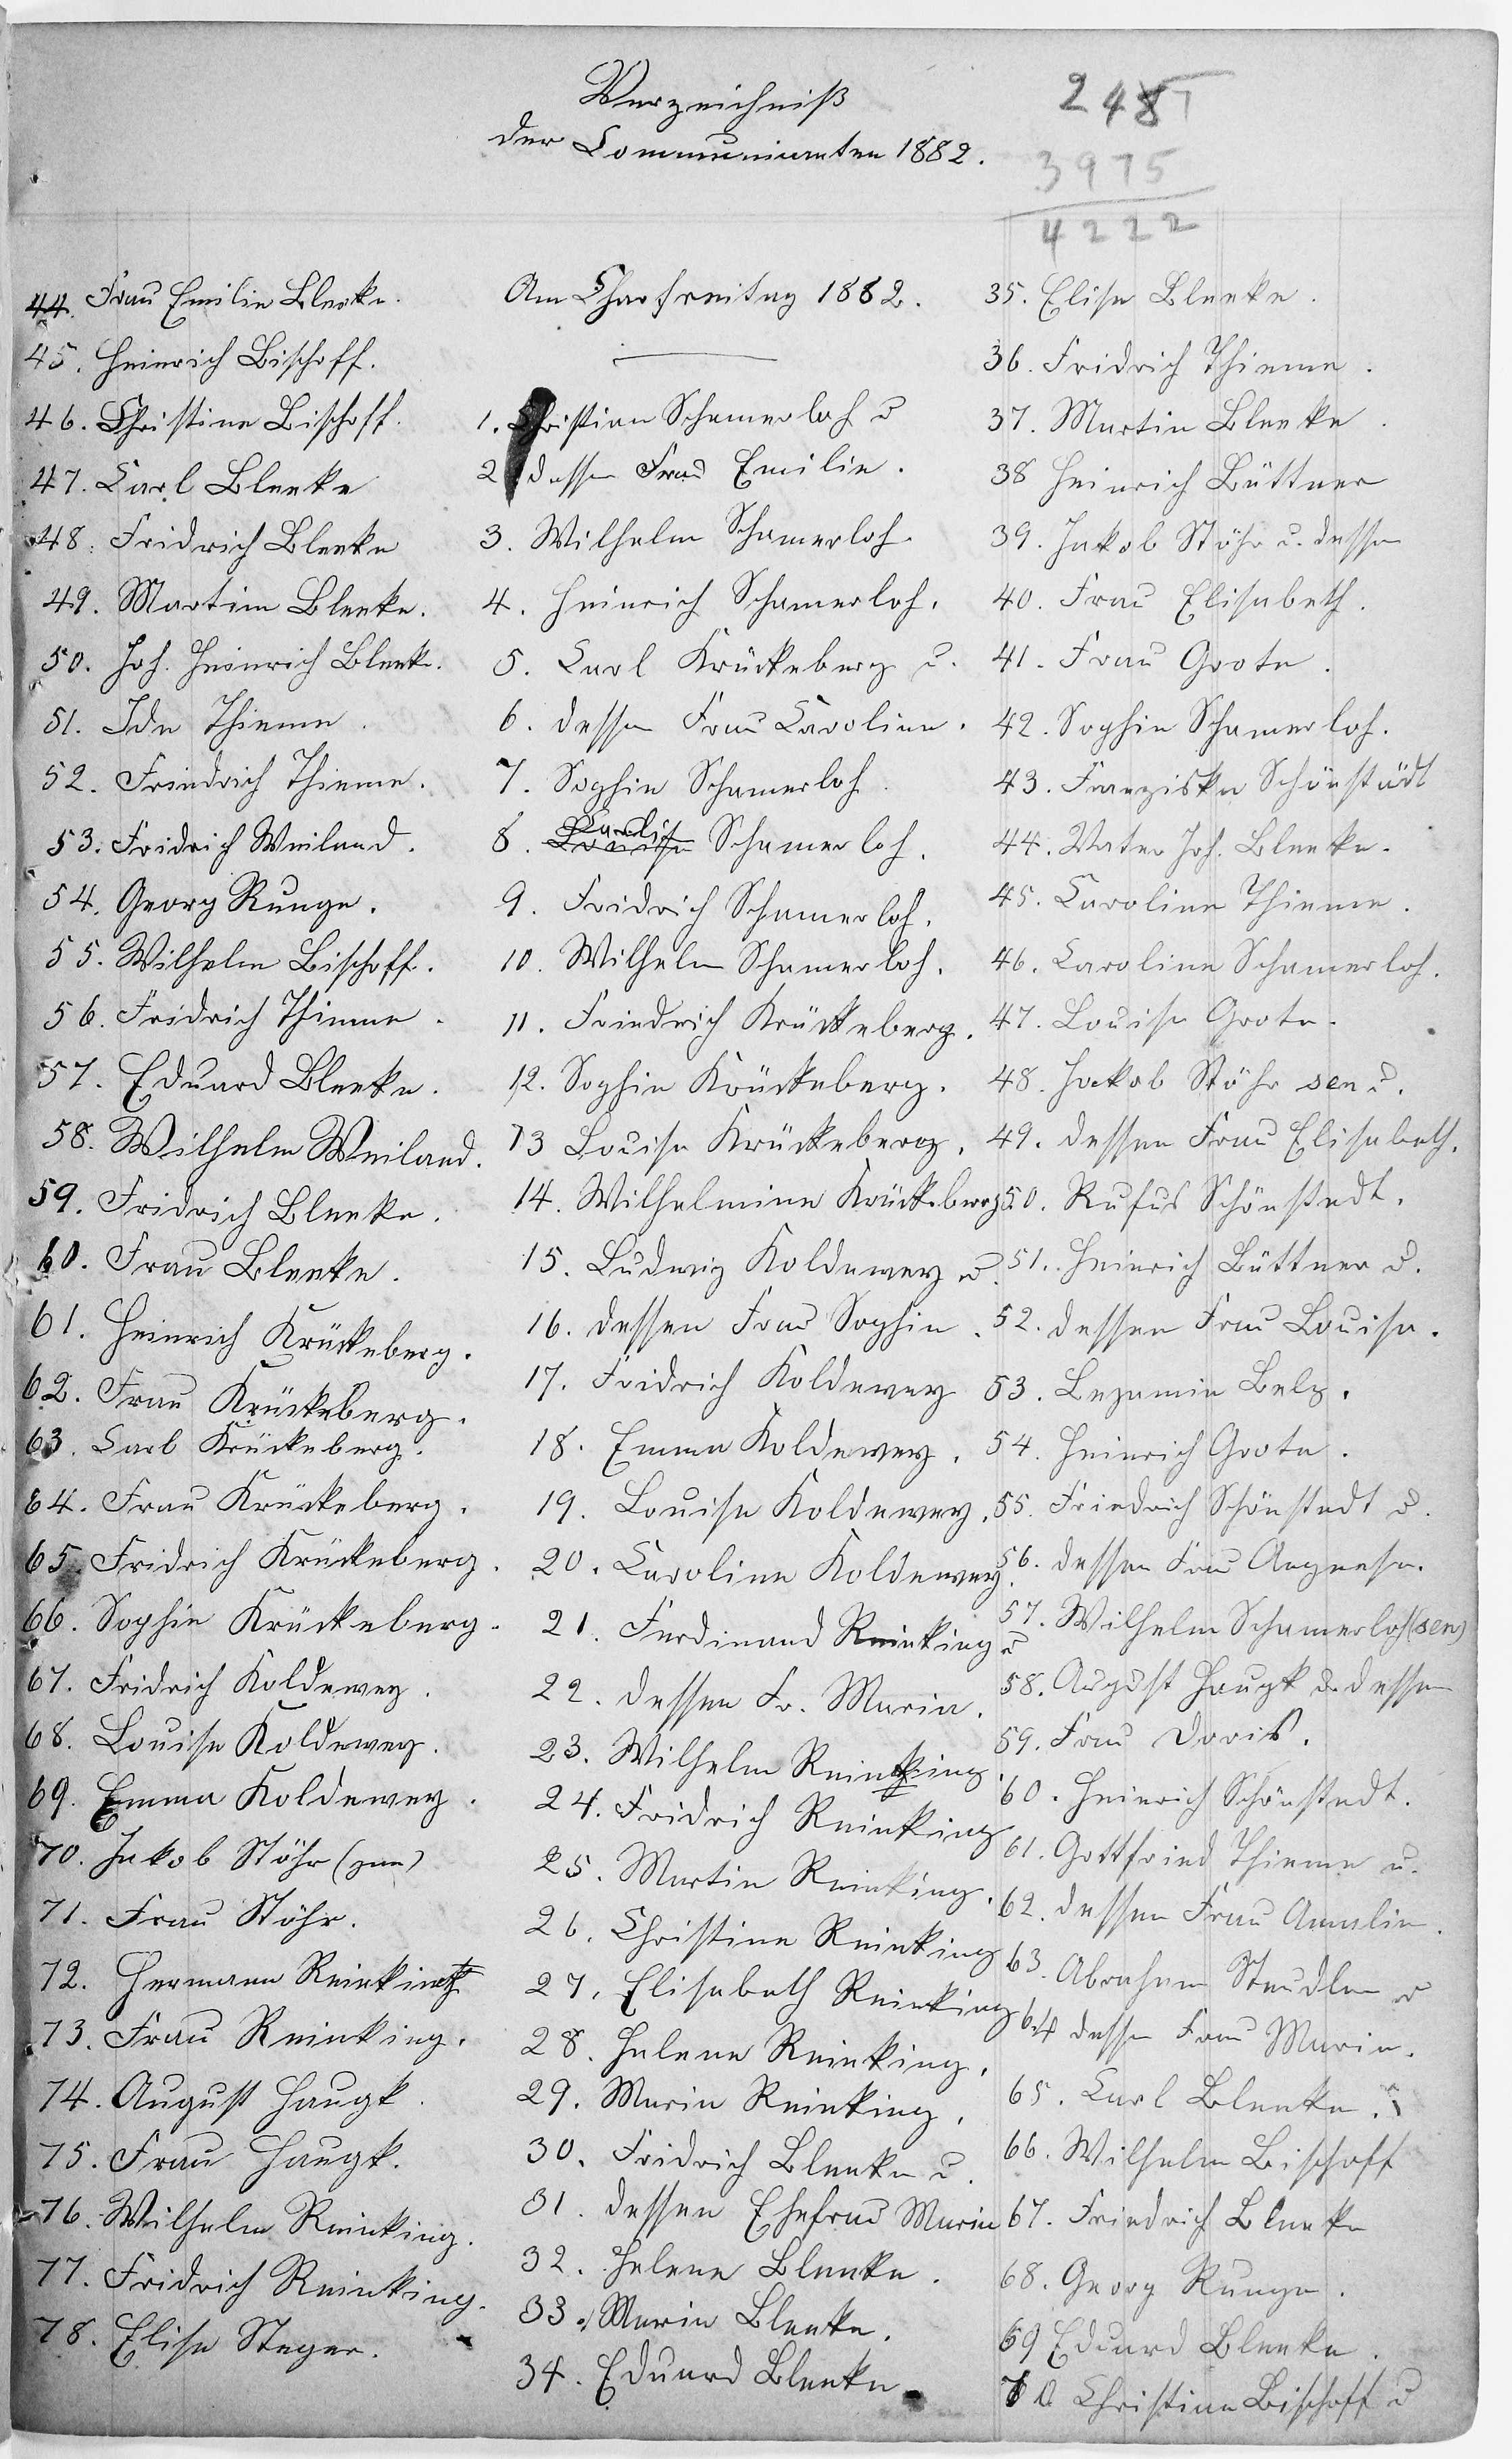 Verzeichniß
der Communicanten 1882.
2487
3975
4222
44. Frau Emilie Bleeke.
45. Heinrich Bischoff.
46. Christine Bischoff.
47. Carl Bleeke
48. Fridrich Bleeke
49. Martin Bleeke.
50. Joh. Heinrich Bleeke.
51. Ida Thieme.
52. Friedrich Thieme.
53. Fridrich Weiland.
54. Georg Runge.
55. Wilhelm Bischoff.
56. Fridrich Thieme.
57. Eduard Bleeke.
58. Wilhelm Weiland.
59. Fridrich Bleeke.
60. Frau Bleeke.
61. Heinrich Krückeberg.
62. Frau Krückeberg.
63. Carl Krückeberg.
64. Frau Krückeberg.
65. Fridrich Krückeberg.
66. Sophie Krückeberg.
67. Fridrich Koldewey.
68. Louise Koldewey.
69. Emma Koldewey.
70. Jakob Stöhr (jun)
71. Frau Stöhr.
72. Hermann Reinking
73. Frau Reinking.
74. August Haugk.
75. Frau Haugk.
76. Wilhelm Reinking.
77. Fridrich Reinking.
78. Elise Steger.
Am Charfreitag 1882.
1. Christian Schamerloh u
2. dessen Frau Emilie.
3. Wilhelm Schamerloh.
4. Heinrich Schamerloh.
5. Carl Krückeberg u.
6. dessen Frau Caroline.
7. Sophie Schamerloh.
8. Schamerloh.
9. Fridrich Schamerloh.
10. Wilhelm Schamerloh.
11. Friedrich Krückeberg.
12. Sophie Krückeberg.
13 Louise Krückeberg.
14. Wilhelmine Krückeberg.
15. Ludwig Koldewey u.
16. dessen Frau Sophie.
17. Fridrich Koldewey
18. Emma Koldewey.
19. Louise Koldewey.
20. Caroline Koldewey.
21. Ferdinand Reinking u
22. dessen Fr. Marie.
23. Wilhelm Reinking.
24. Fridrich Reinking
25. Martin Reinking.
26. Christine Reinking
27. Elisabeth Reinking
28. Helene Reinking.
29. Marie Reinking.
30. Fridrich Bleeke u.
31. dessen Ehefrau Marie
32. Helene Bleeke.
33. Marie Bleeke.
34. Eduard Bleeke
35. Elise Bleeke.
36. Fridrich Thieme.
37. Martin Bleeke.
38 Heinrich Büttner
39. Jakob Stöhr u. dessen
40. Frau Elisabeth.
41. Frau Grote.
42. Sophie Schamerloh.
43. Franziska Schönstädt
44. Vater Joh. Bleeke.
45. Caroline Thieme.
46. Caroline Schamerloh.
47. Louise Grote.
48. Jakob Stöhr sen u.
49. dessen Frau Elisabeth.
50. Rufus Schönstedt.
51. Heinrich Büttner u.
52. dessen Frau Louise.
53. Bezamin Belz.
54. Heinrich Grote.
55. Friedrich Schönstedt u.
56. dessen Frau Angnese.
57. Wilhelm Schamerloh (sen)
58. August Haugk u. dessen
59. Frau Doris.
60. Heinrich Schönstedt.
61. Gottfried Thieme u.
62. dessen Frau Amalie.
63. Abraham Steudle u
64 dessen Frau Marie.
65. Carl Bleeke.
66. Wilhelm Bischoff
67. Friedrich Bleeke
68. Georg Runge.
69 Eduard Bleeke.
70. Christine Bischoff u